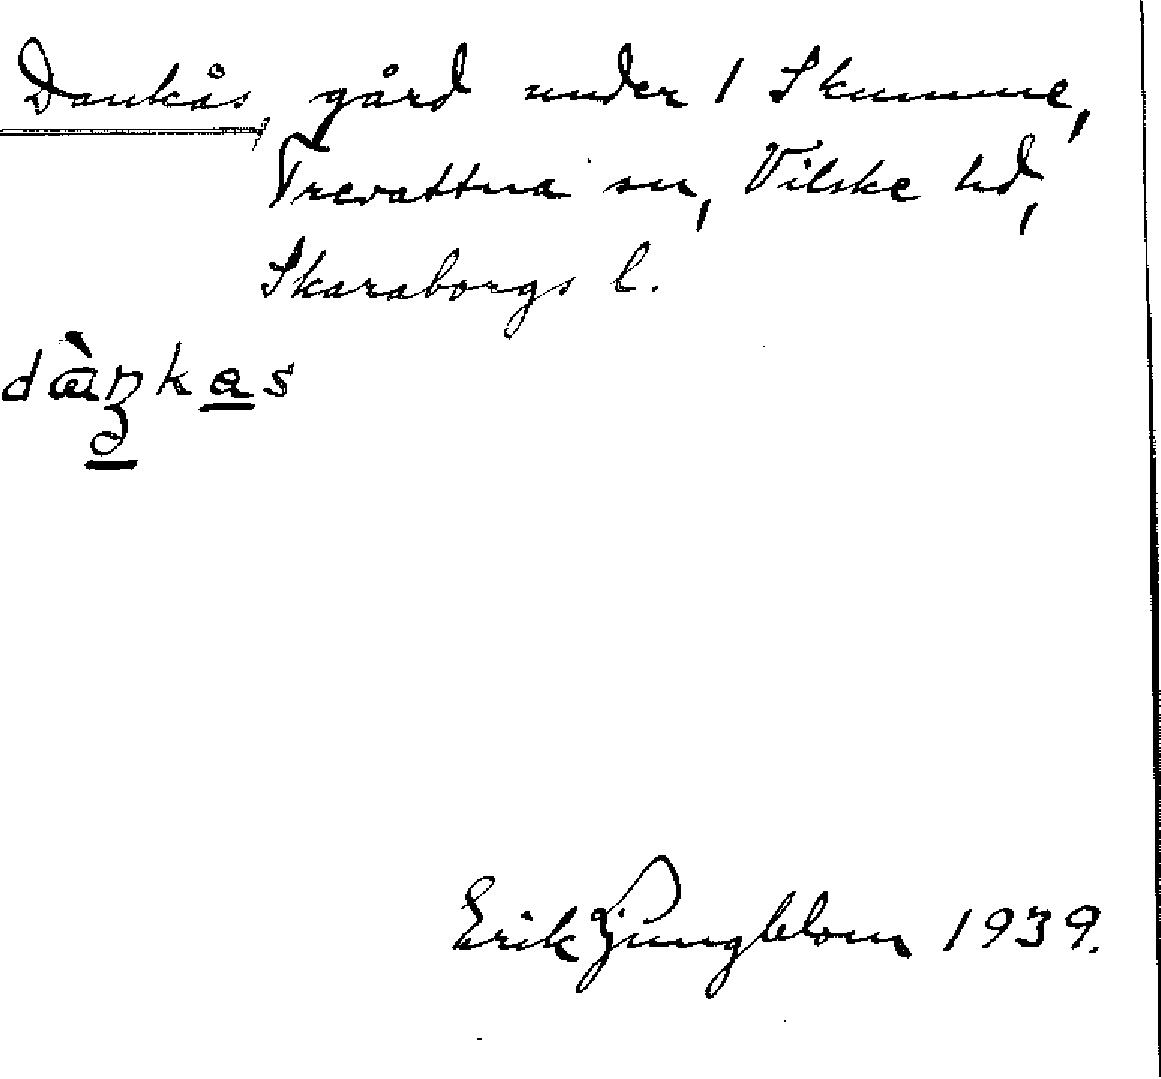 Dankås gård under 1 Skumme,
Trevattna sn, Vilske hd,
Skaraborgs l.
Erik Ljungblom 1939.